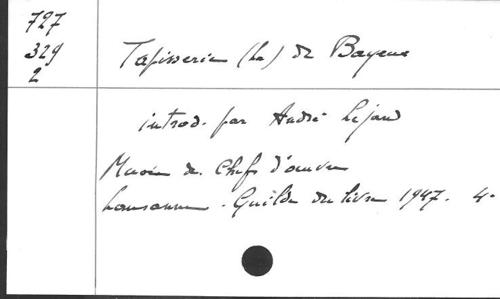 727
329
2
Tapisserie (La) de Bayeux
introd. par André Lejard
Musée des Chefs d'œuvre
Lausanne. Guilde du livre 1947. 4°